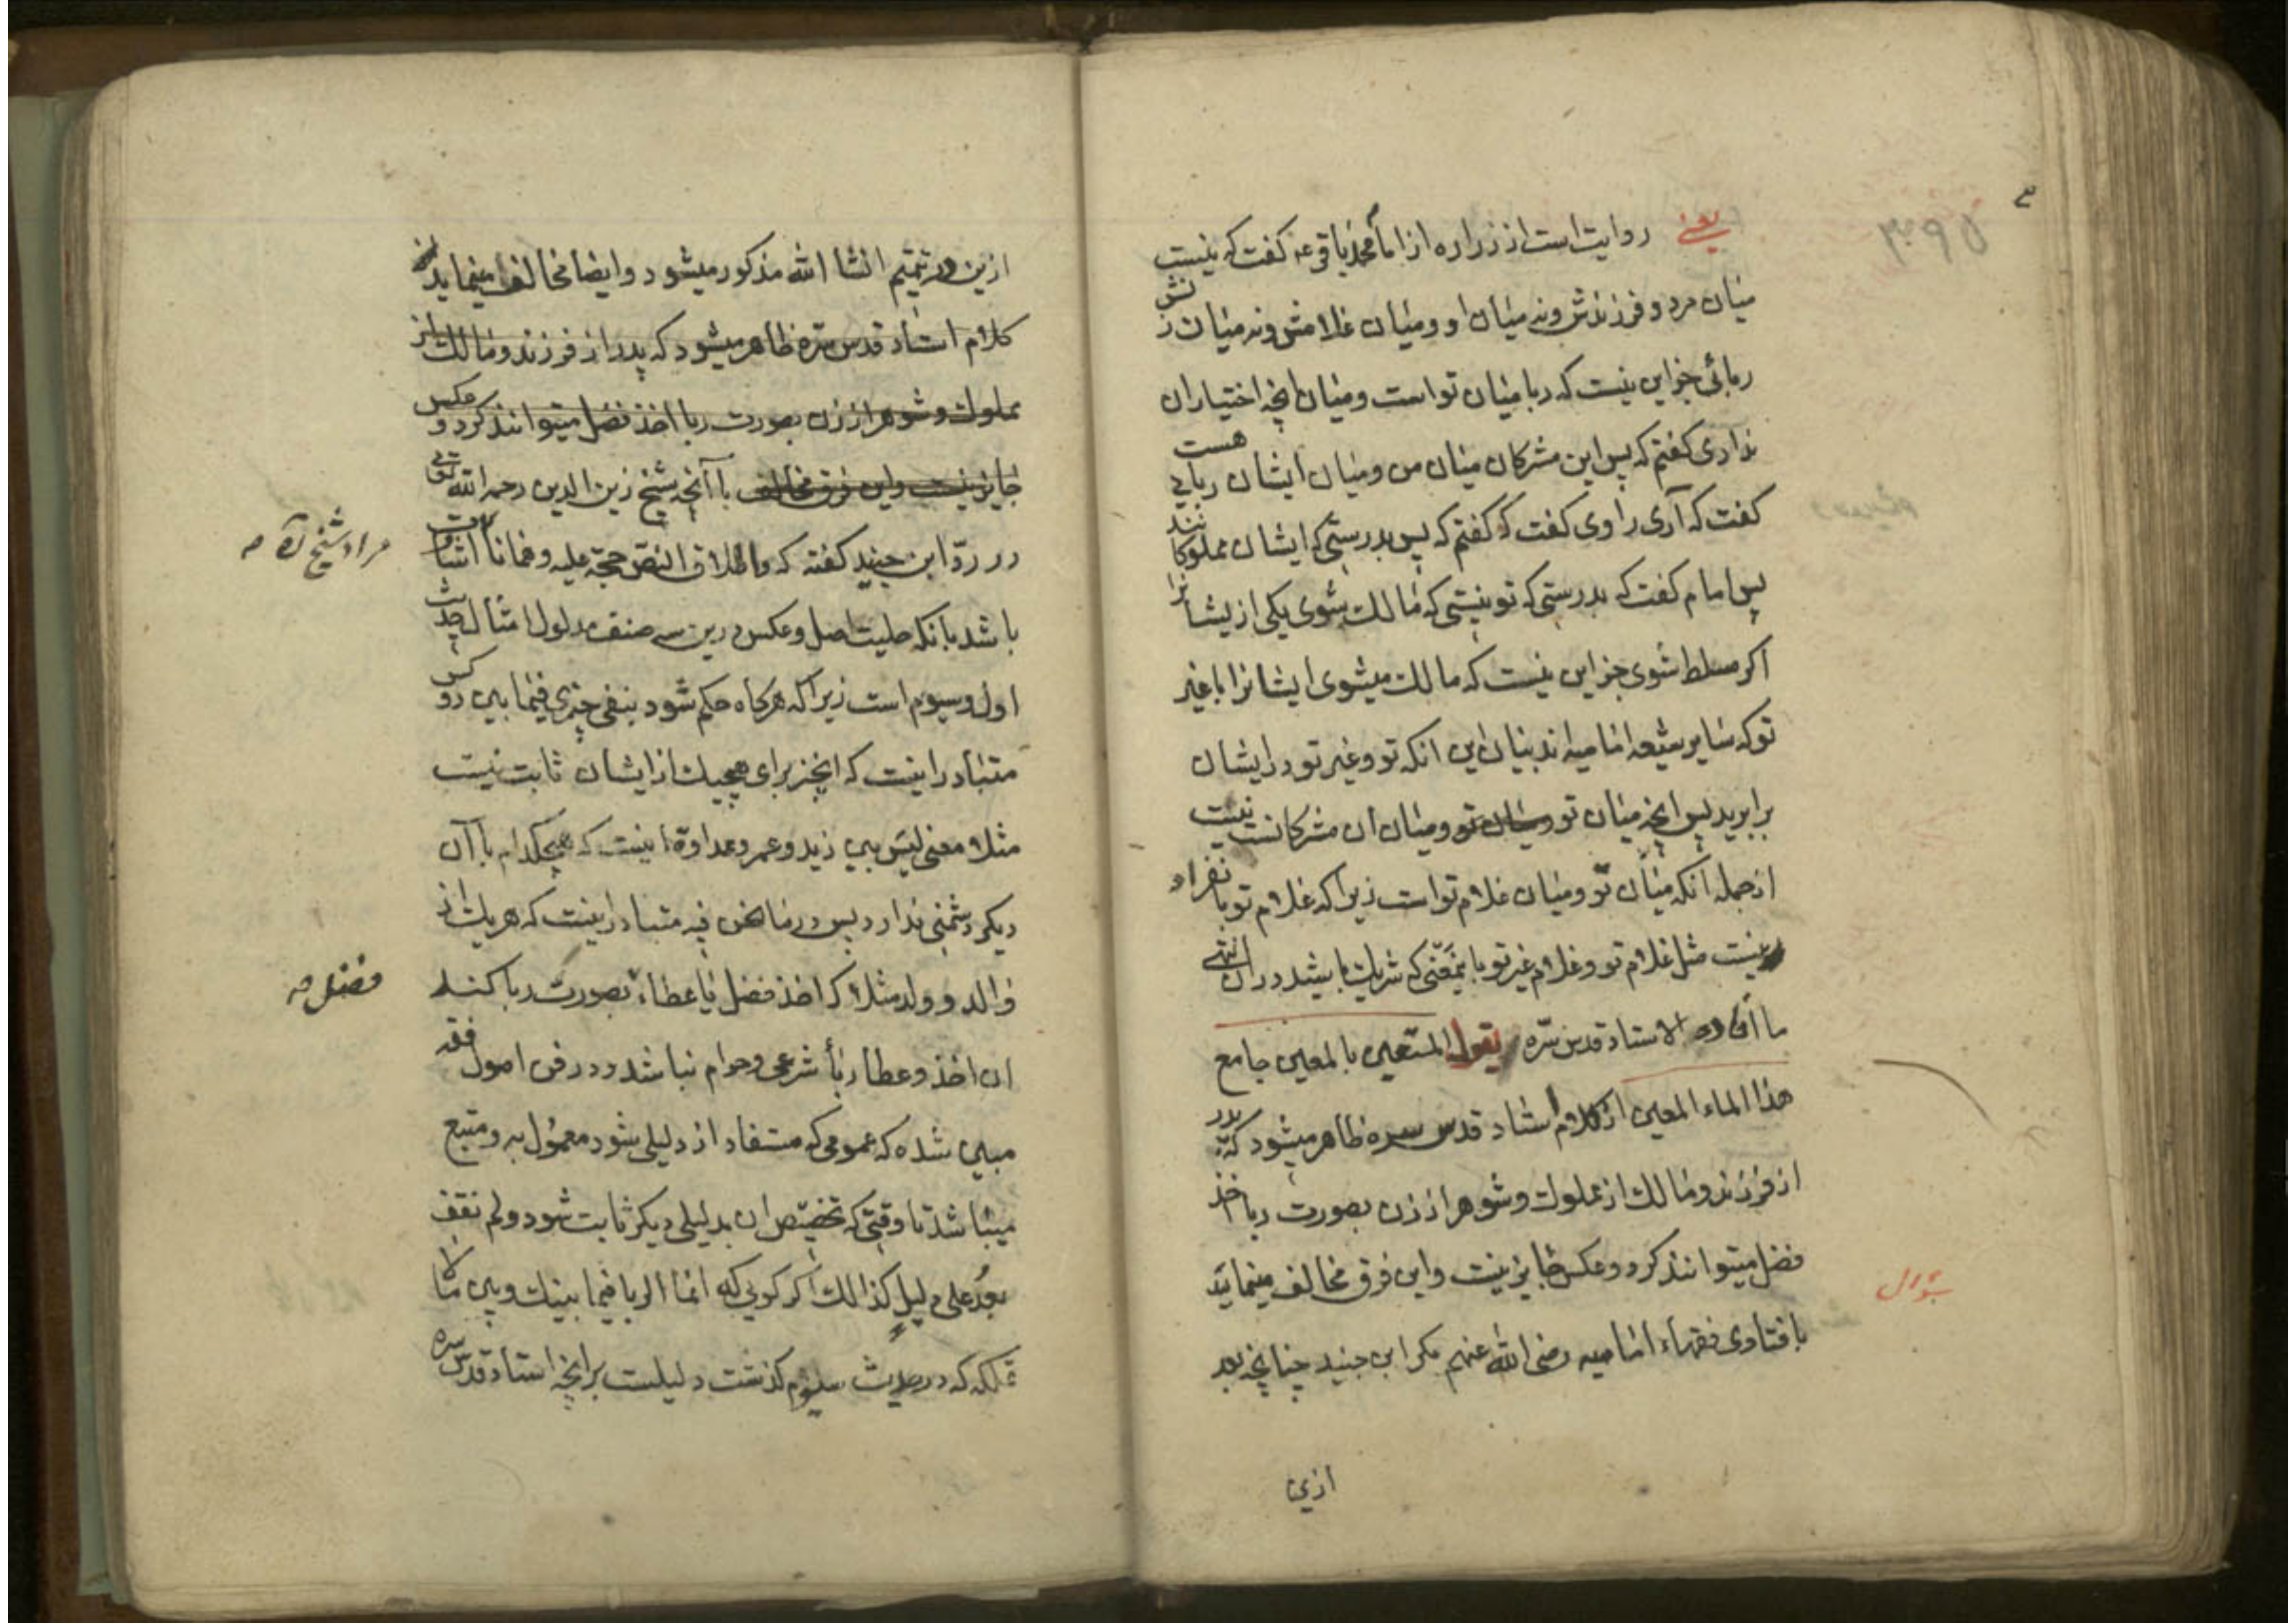 یعنی روایت است از زراره از امام محمد باقر ع گفت که نیست
میان مرد و فرزندش و نه میان او و میان غلامش و نه میان زنش
ربائی جز این نیست که ربا میان تو است و میان انچه اختیار ان
نداری گفتم که پس این مشرکان میان من و میان ایشان ربای هست
گفت که آری راوی گفت که گفتم که پس بدرستی که ایشان مملوکانند
پس امام گفت که بدرستی که تو نیستی که مالک شوی یکی از یشانرا
اکر مسلط شوی جز این نیست که مالک میشوی ایشانرا با غیر
تو که سایر شیعه امامیه اند بیان این انکه تو و غیر تو در ایشان
برابرید پس انچه میان تو و میان ان مشرکانست نیست
از جمله انکه میان تو و میان غلام تو است زیرا که غلام تو بانفراد
نیست مثل غلام تو و غلام غیر تو باینمعنی که شریک باشید در ان انتهی
ما افاده الاستاد قدس سّره یقول المستعین بالمعین جامع
هذا الماء المعین از کلام استاد قدس سره ظاهر میشود که پدر
از فرزند و مالک از مملوک و شوهر از زن بصورت ربا اخذ
فضل میتوانند کرد و عکس جایز نیست و این فرق مخالف مینماید
با فتاوی فقهاء امامیه رضی الله عنهم مکر ابن جنید چنانچه بعد
ازین
۳۹۵
ازین در تتمیم انشا الله مذکور میشود و ایضا مخالف مینماید
کلام استاد قدس سّره ظاهر میشود که پدر از فرزند و مالک از
مملوک و شوهر از زن بصورت ربا اخذ فضل میتوانند کرد و عکس
جایز نیست و این فرق مخالف با آنچه شیخ زین الدین رحمه الله تعالی
در ردّ ابن جنید گفته که و اطلاق النصّ حجّة علیه و همانا اشارت
باشد بانکه حلیت اصل و عکس درین سه صنف مدلول امثال حدیث
اول و سیوم است زیرا که هرکاه حکم شود بنفی چیزی فیما بین دو کس
متبادر اینست که انچیز برای هیچیک از ایشان ثابت نیست
مثلا معنی لیس بین زید و عمر و عداوة اینست که هیچکدام با آن
دیکر دشمنی ندارد پس در ما نحن فیه متبادر اینست که هر یک از
والد و ولد مثلا که اخذ فضل یا عطاء بصورت ربا کند
ان اخذ و عطا ربأ شرعی و حرام نباشد و در فن اصول فقه
مبین شده که عمومی که مستفاد از دلیلی شود معمول به و متبع
میباشد تا وقتی که تخصیص ان بدلیلی دیکر ثابت شود و لم نقف
بعدُ علی دلیل کذالک اکر کویی که انما الربا فیما بینک و بین ما لا
تملکه که در حدیث سیوم کذشت دلیلست بر انچه استاد قدس سره
مراد شیخ
فضل